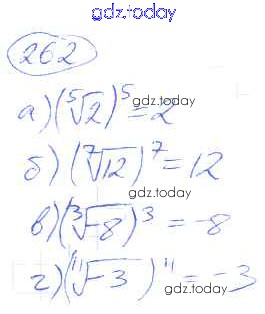 gdz.today
262
а) (⁵√2)⁵ = 2
gdz.today
б) (⁷√12)⁷ = 12
в) (³√-8)³ = -8
г) (¹¹√-3)¹¹ = -3
gdz.today